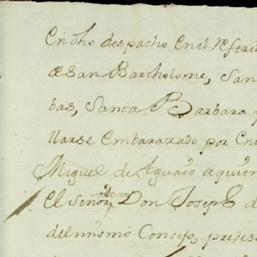 En dho despacho En el Referi
de San Bartholome, San
bas, Santa Barbara y
llarse Embarazado por En
Miguel de Aguaio a quien
El Señor Don Joseph d
del mismo Consejo, preses